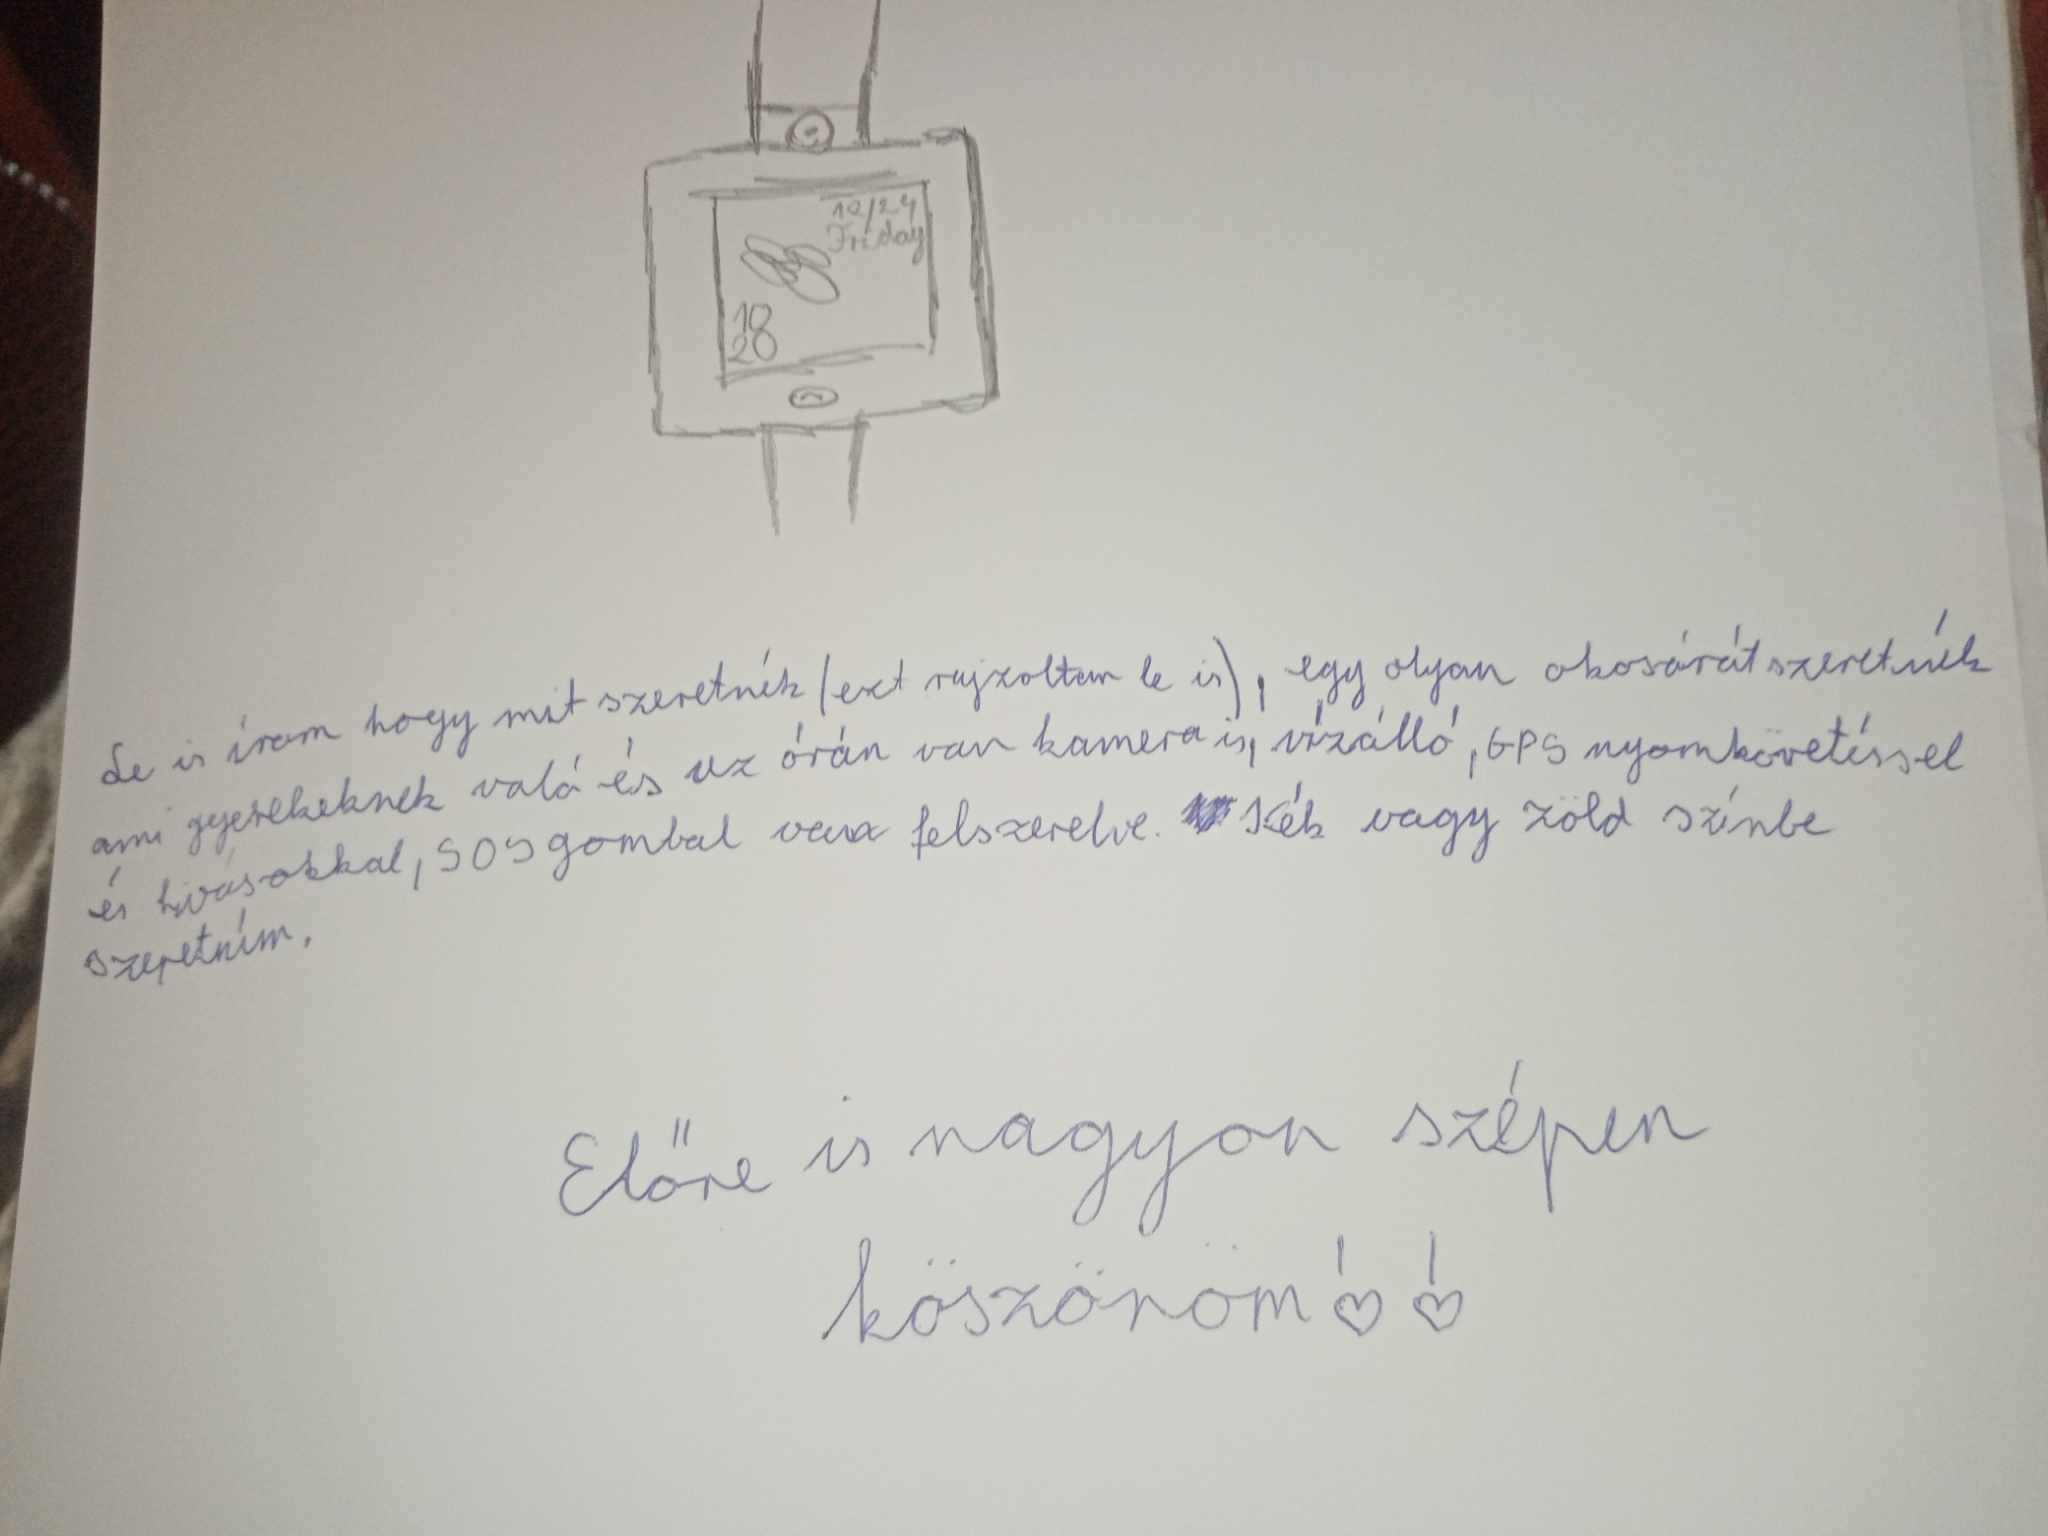 10/24
Friday
10
20
Le is írom hogy mit szeretnék (ezt rajzoltam le is), egy olyan okosórát szeretnék
ami gyerekeknek való és az órán van kamera is, vízálló, GPS nyomkövetéssel
és hívásokkal, SOS gombal van felszerelve. Kék vagy zöld színbe
szeretném.
Előre is nagyon szépen
köszönöm!!